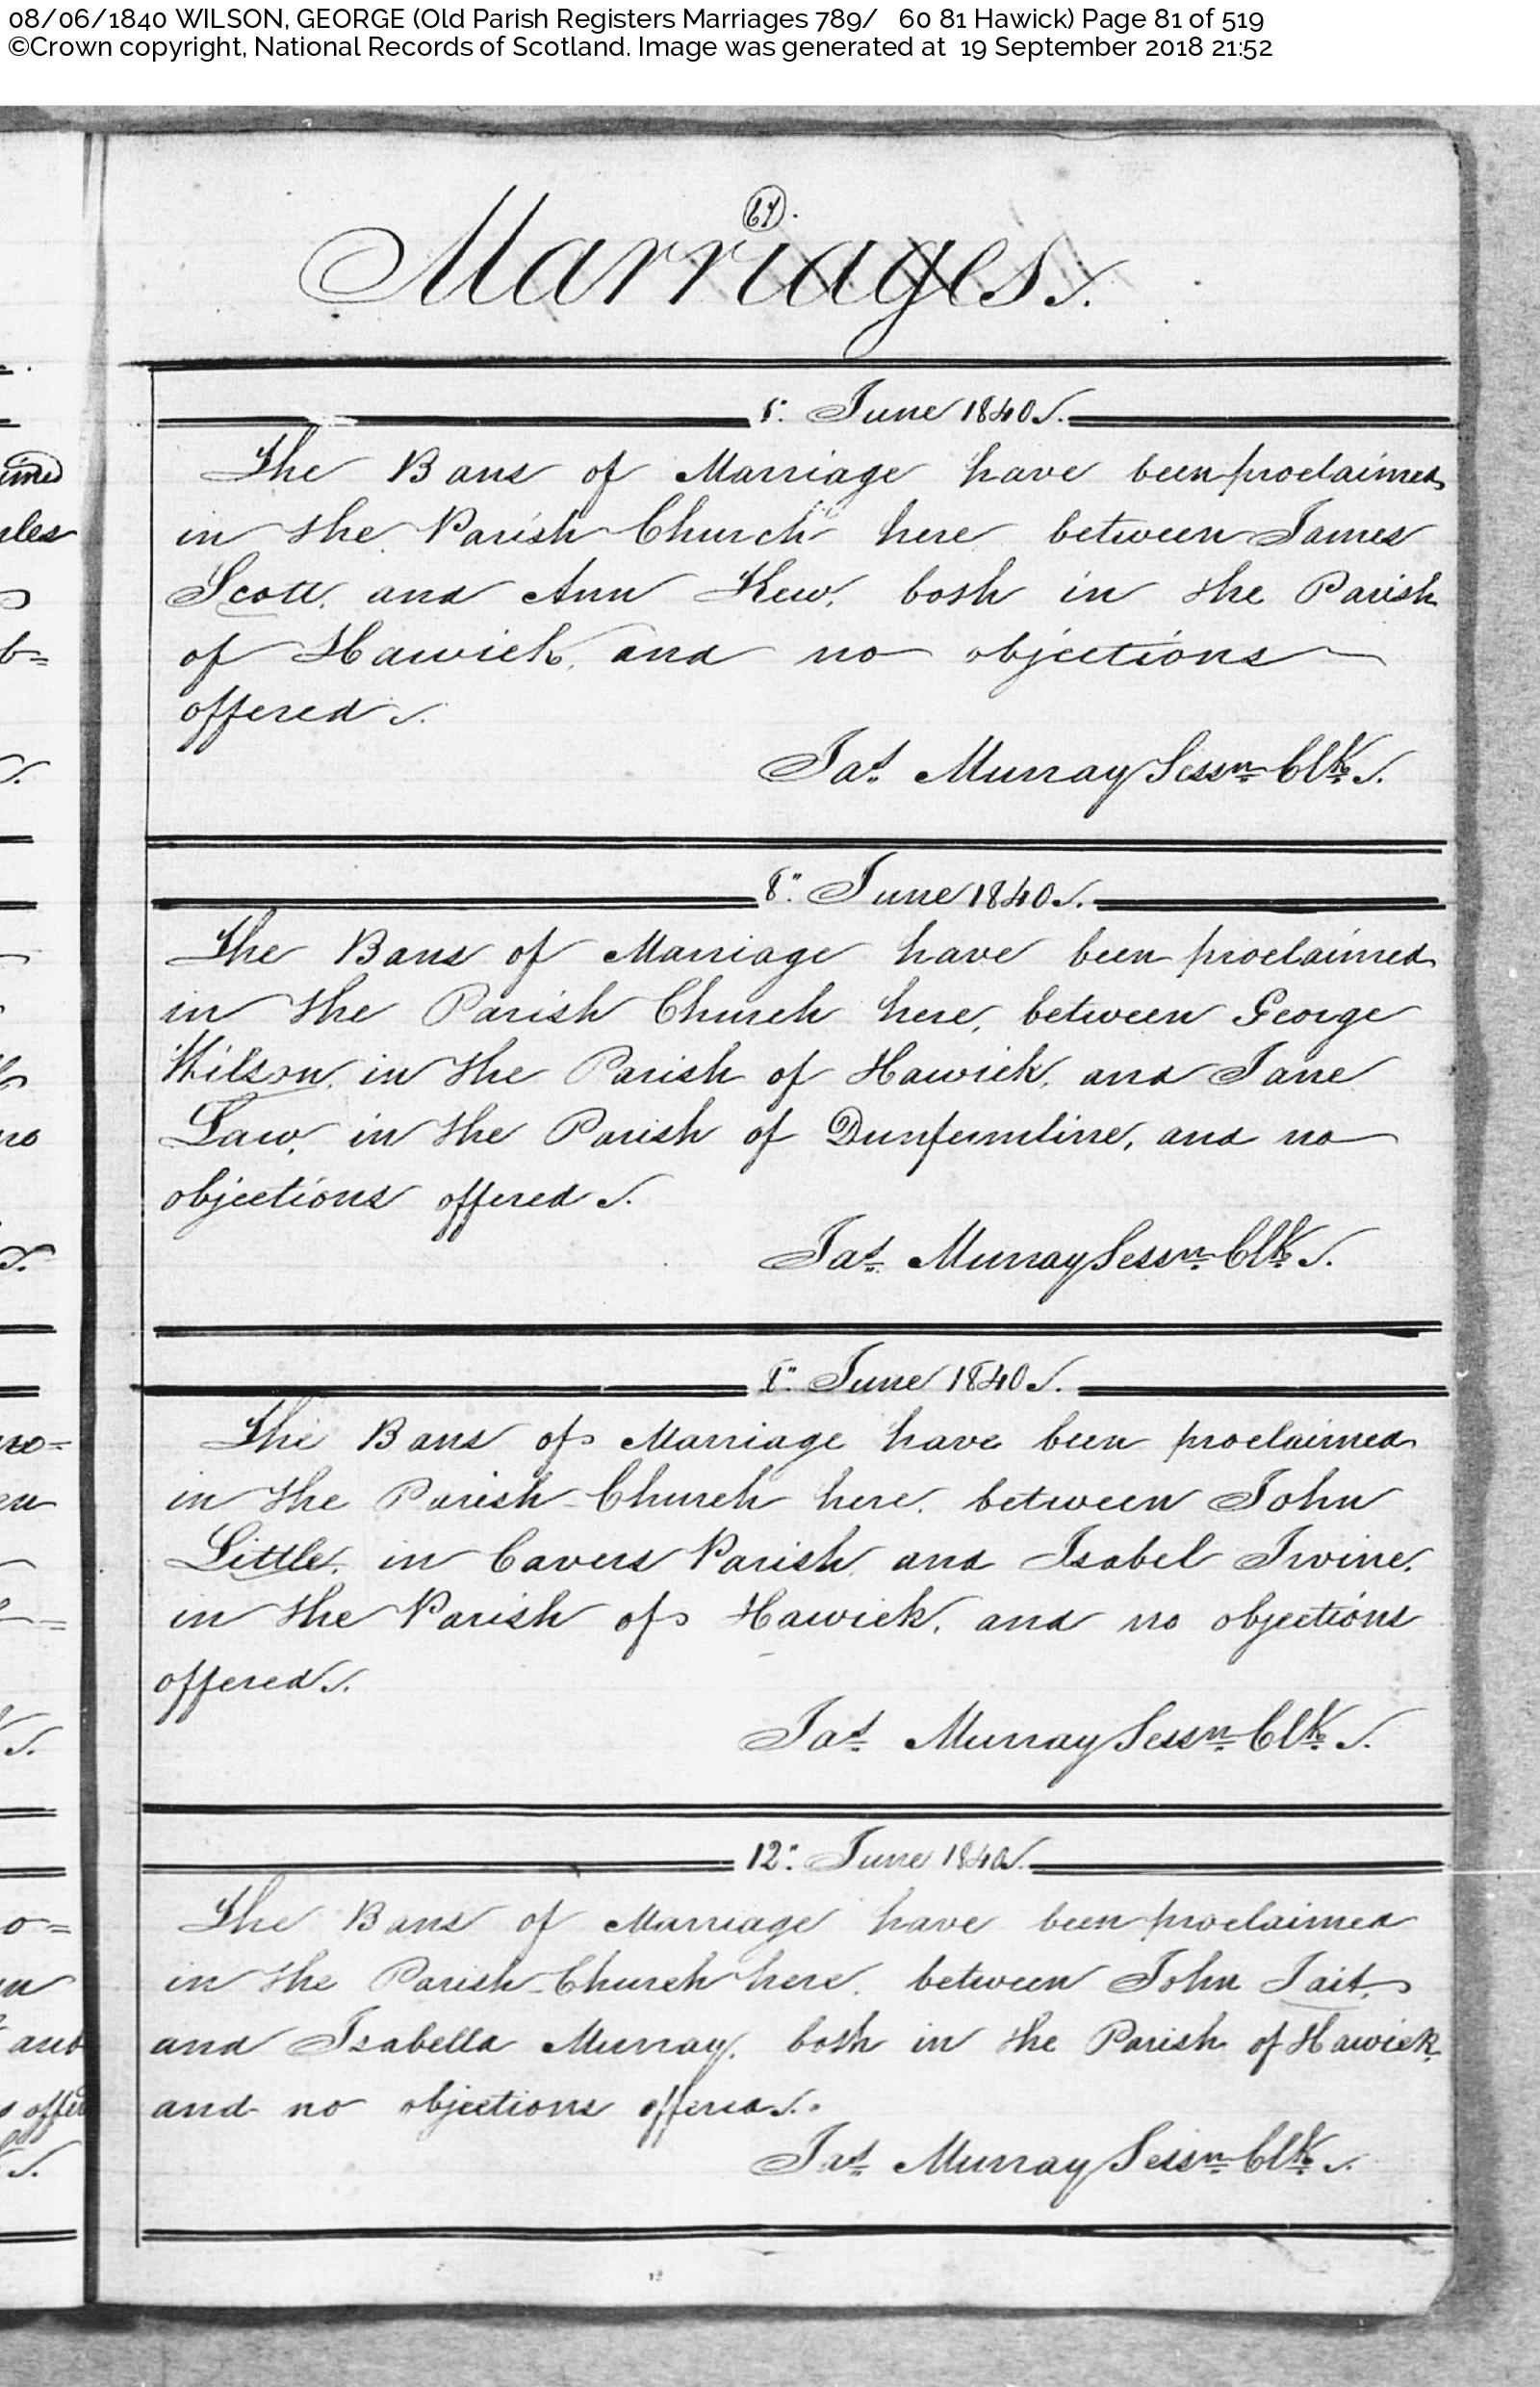 08/06/1840 WILSON, GEORGE (Old Parish Registers Marriages 789/ 60 81 Hawick) Page 81 of 519
©Crown copyright, National Records of Scotland. Image was generated at 19 September 2018 21:52
Marriages.
June 1840.
The Bans of Marriage have been proclaimed
in the Parish Church here between James
Scott, and Ann Kew, both in the Parish
of Hawick, and no objections
offered.
Jas. Murray Sessn. Clk.
8" June 1840.
The Bans of Marriage have been proclaimed
in the Parish Church here, between George
Wilson, in the Parish of Hawick, and Jane
Law, in the Parish of Dunfermline, and no
objections offered.
Jas. Murray Sessn. Clk.
8" June 1840.
The Bans of Marriage have been proclaimed
in the Parish Church here, between John
Little, in Cavers Parish, and Isabel Irvine,
in the Parish of Hawick, and no objections
offered.
Jas. Murray Sessn. Clk.
12" June 1840.
The Bans of Marriage have been proclaimed
in the Parish Church here, between John Tait,
and Isabella Murray, both in the Parish of Hawick,
and no objections offered.
Jas. Murray Sessn. Clk.